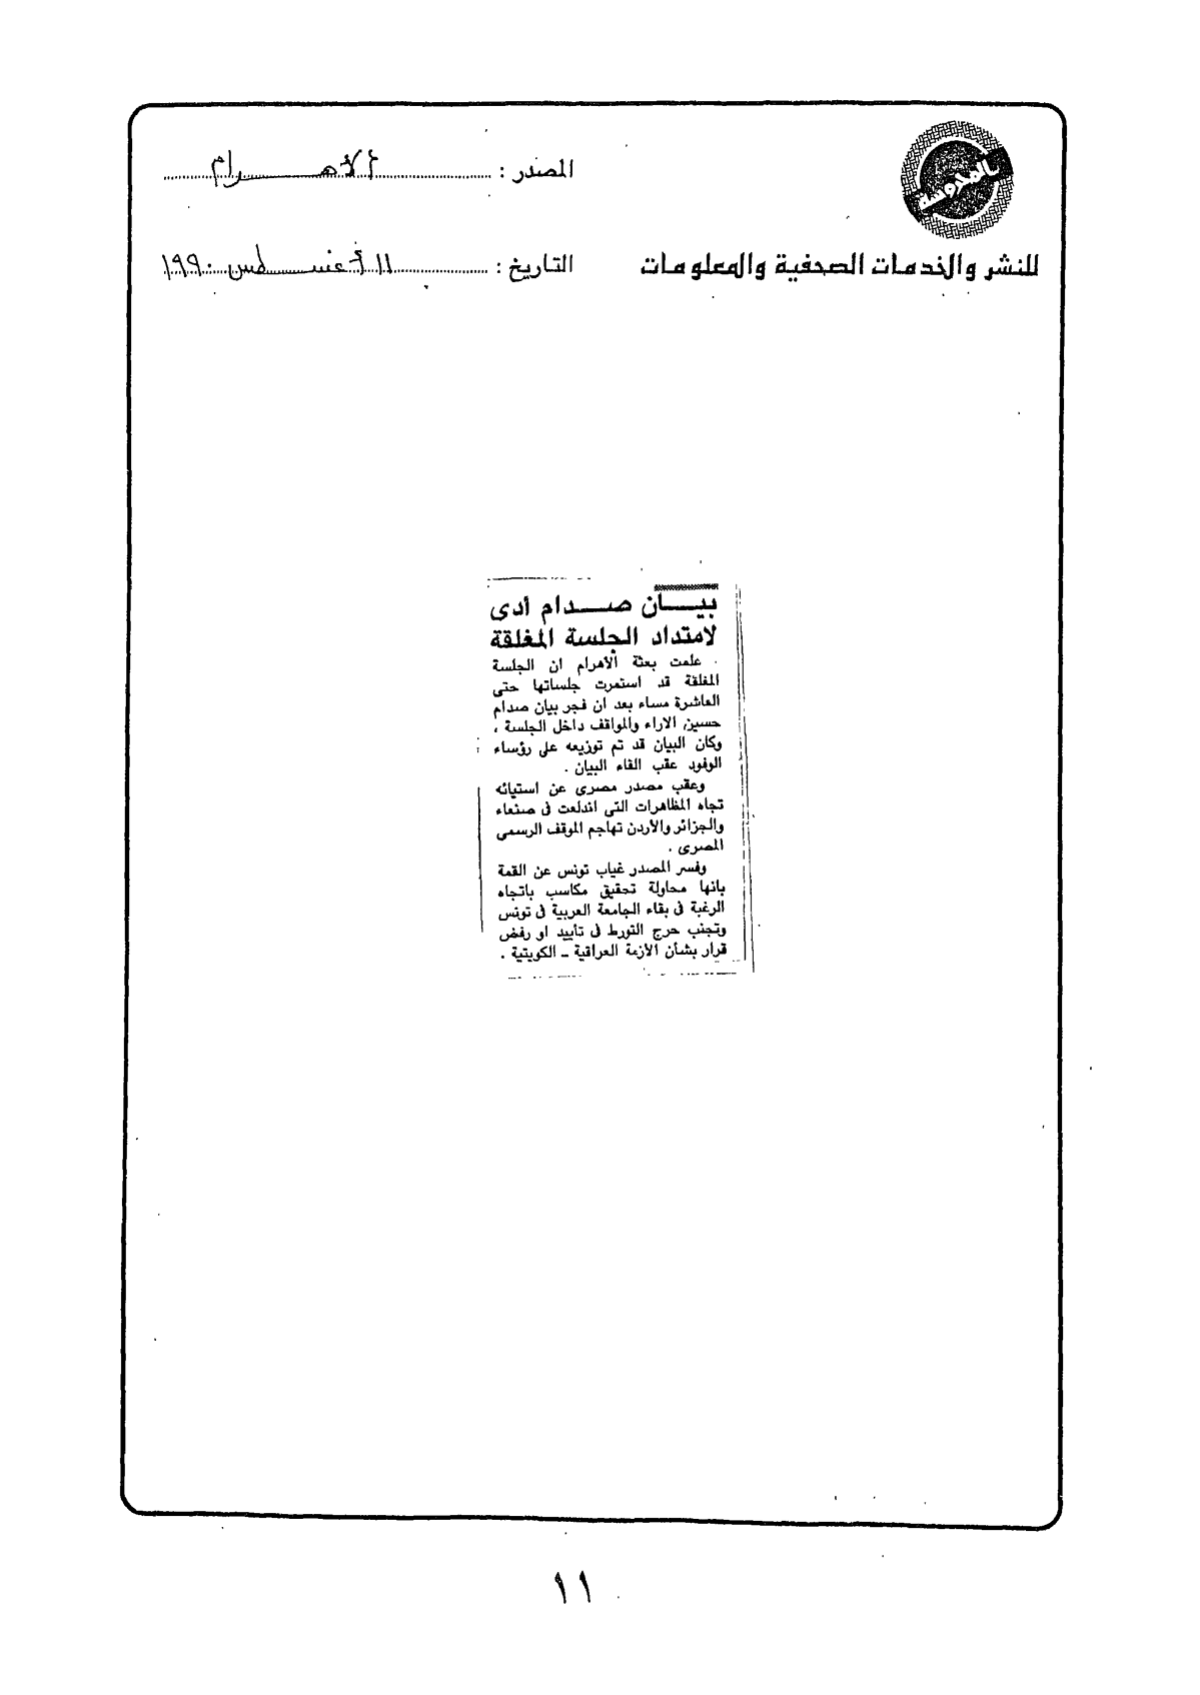 المصدر : الأهـــرام
للنشر والخدمات الصحفية والمعلومات
التاريخ : ١١ أغسطس ١٩٩٠
بيـــان صـــدام أدى
لامتداد الجلسة المغلقة
علمت بعثة الأهرام ان الجلسة
المغلقة قد استمرت جلساتها حتى
العاشرة مساء بعد ان فجر بيان صدام
حسين الاراء والمواقف داخل الجلسة ،
وكان البيان قد تم توزيعه على رؤساء
الوفود عقب القاء البيان .
وعقب مصدر مصرى عن استيائه
تجاه المظاهرات التى اندلعت فى صنعاء
والجزائر والأردن تهاجم الموقف الرسمى
المصرى .
وفسر المصدر غياب تونس عن القمة
بانها محاولة تحقيق مكاسب باتجاه
الرغبة فى بقاء الجامعة العربية فى تونس
وتجنب حرج التورط فى تأييد او رفض
قرار بشأن الأزمة العراقية ـ الكويتية .
١١